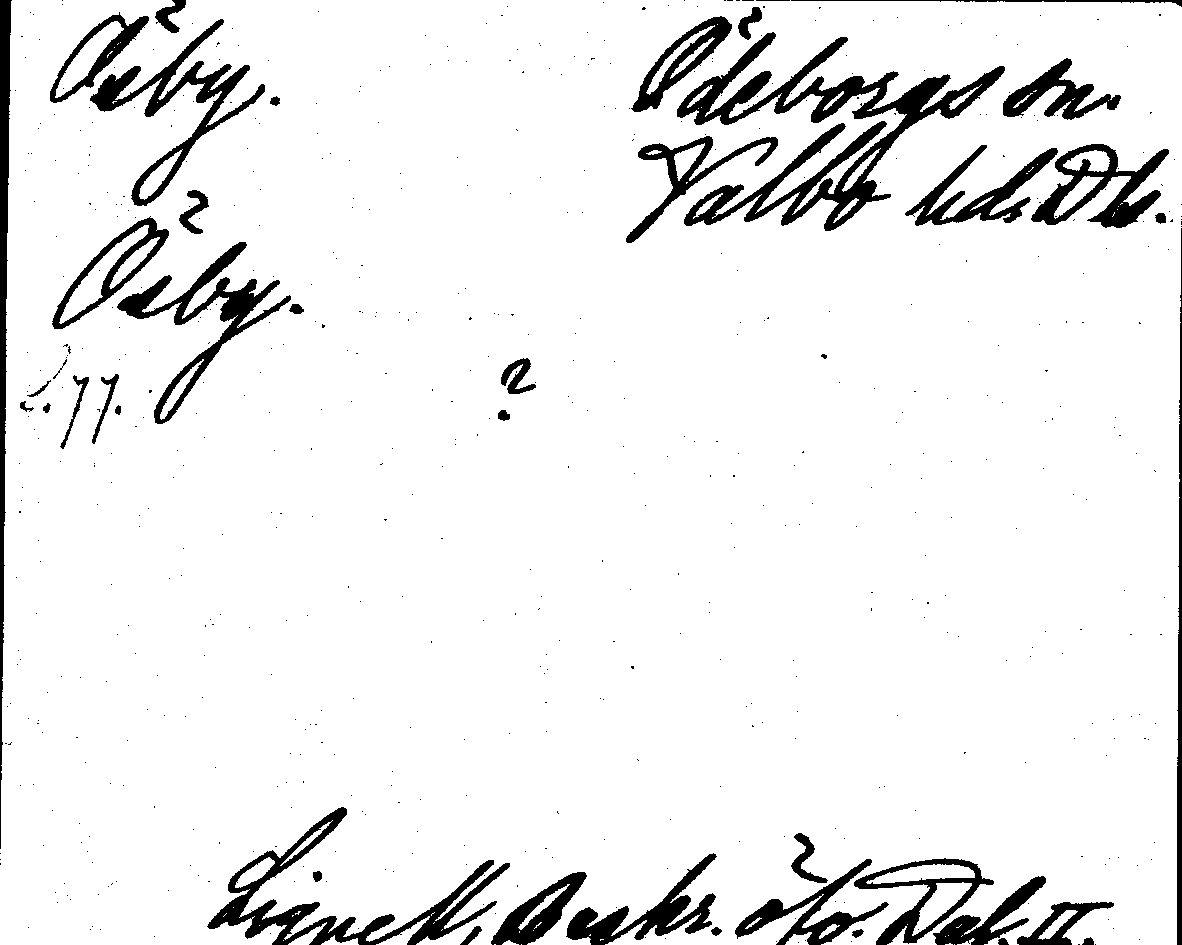 Ösby.
Ödeborgs sn.
Valbo hd. Dls.
Ösby.
s. 77.
?
Lignell, Beskr. öfv. Dal. II.